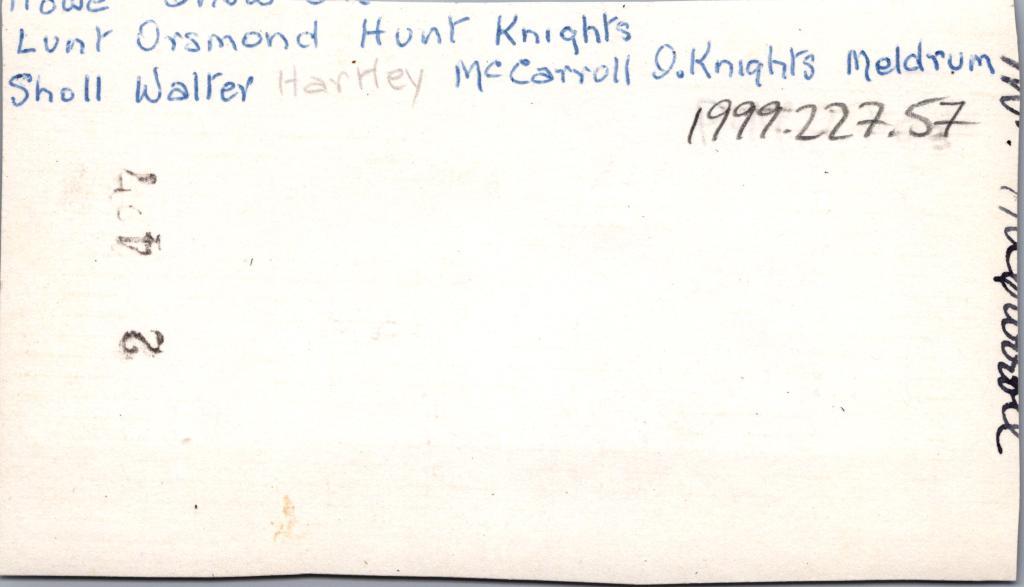 Howe
Lunt Orsmond Hunt Knights
Sholl Walter Hartley McCarroll D.Knights Meldrum
1999.227.57
2 4 7